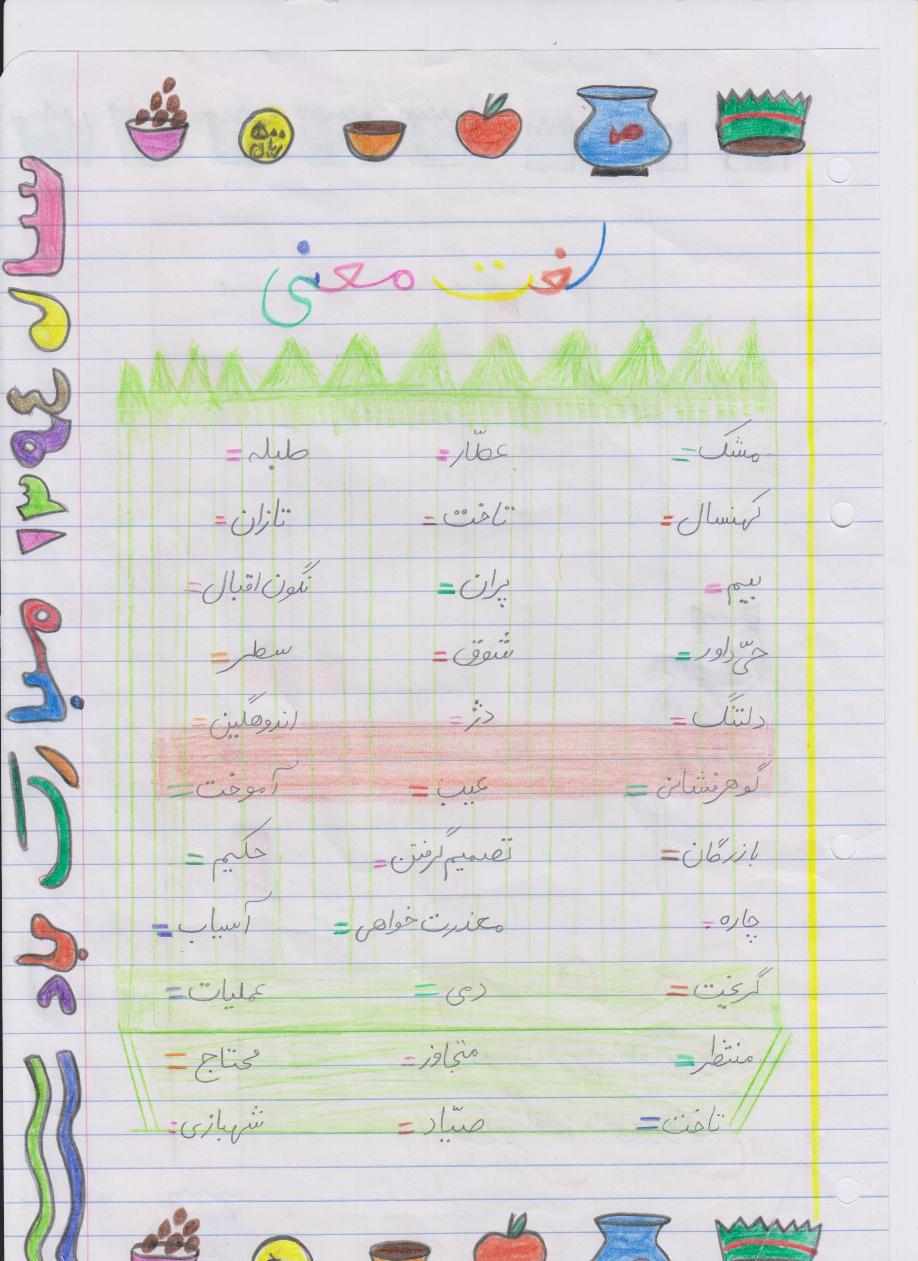 لغت معنی
مشک = عطّار = طبله =
کهنسال = تاخت = تازان =
بیم = پران = نگون اقبال =
حیّ داور = شوق = سطر =
دلتنگ = دژ = اندوهگین =
گوهرفشانی = عیب = آموخت =
بازرگان = تصمیم گرفتن = حکیم =
چاره = معذرت خواهی = آسیاب =
گریخت = دمی = عملیات =
منتظر = متجاوز = محتاج =
تاخت = صیّاد = شهبازی =
سال مبارک باد